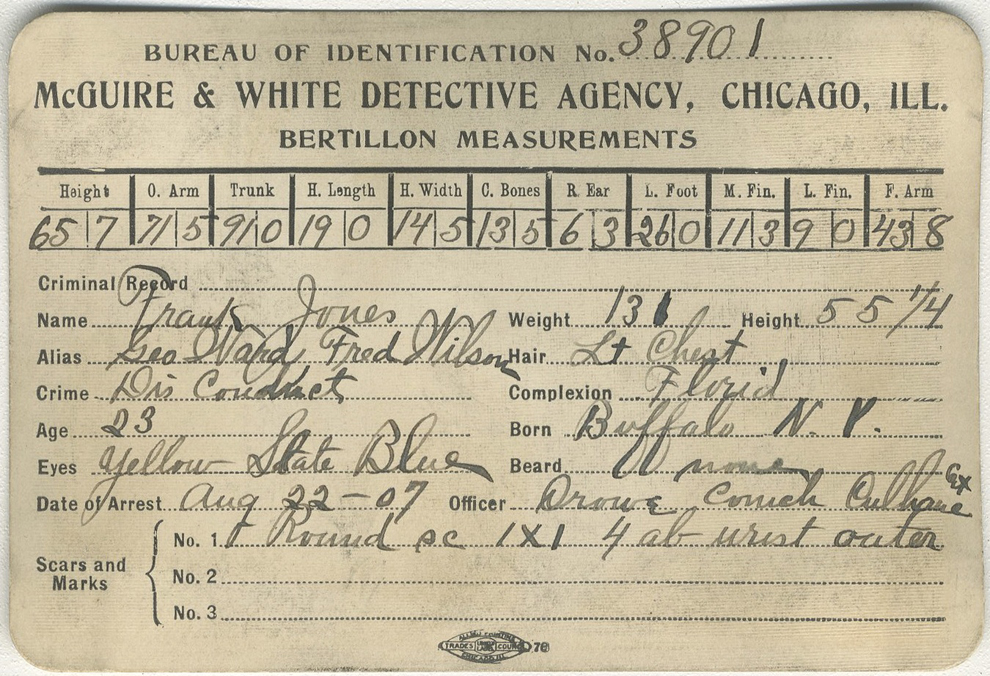 BUREAU OF IDENTIFICATION No. 38901
McGUIRE & WHITE DETECTIVE AGENCY, CHICAGO, ILL.
BERTILLON MEASUREMENTS
Height O. Arm Trunk H. Length H. Width C. Bones R. Ear L. Foot M. Fin. L. Fin. F. Arm
65 7 71 5 91 0 19 0 14 5 13 5 6 3 26 0 11 3 9 0 43 8
Criminal Record
Name Frank Jones Weight 131 Height 5 5 1/4
Alias Geo Ward Fred Wilson Hair Lt Chest
Crime Dis Conduct Complexion Florid
Age 23 Born Buffalo N. Y.
Eyes Yellow State Blue Beard none
Date of Arrest Aug 22-07 Officer Culhane
Scars and Marks
No. 1 Round sc 1X1 4 ab wrist outer
No. 2
No. 3
TRADES COUNCIL 78